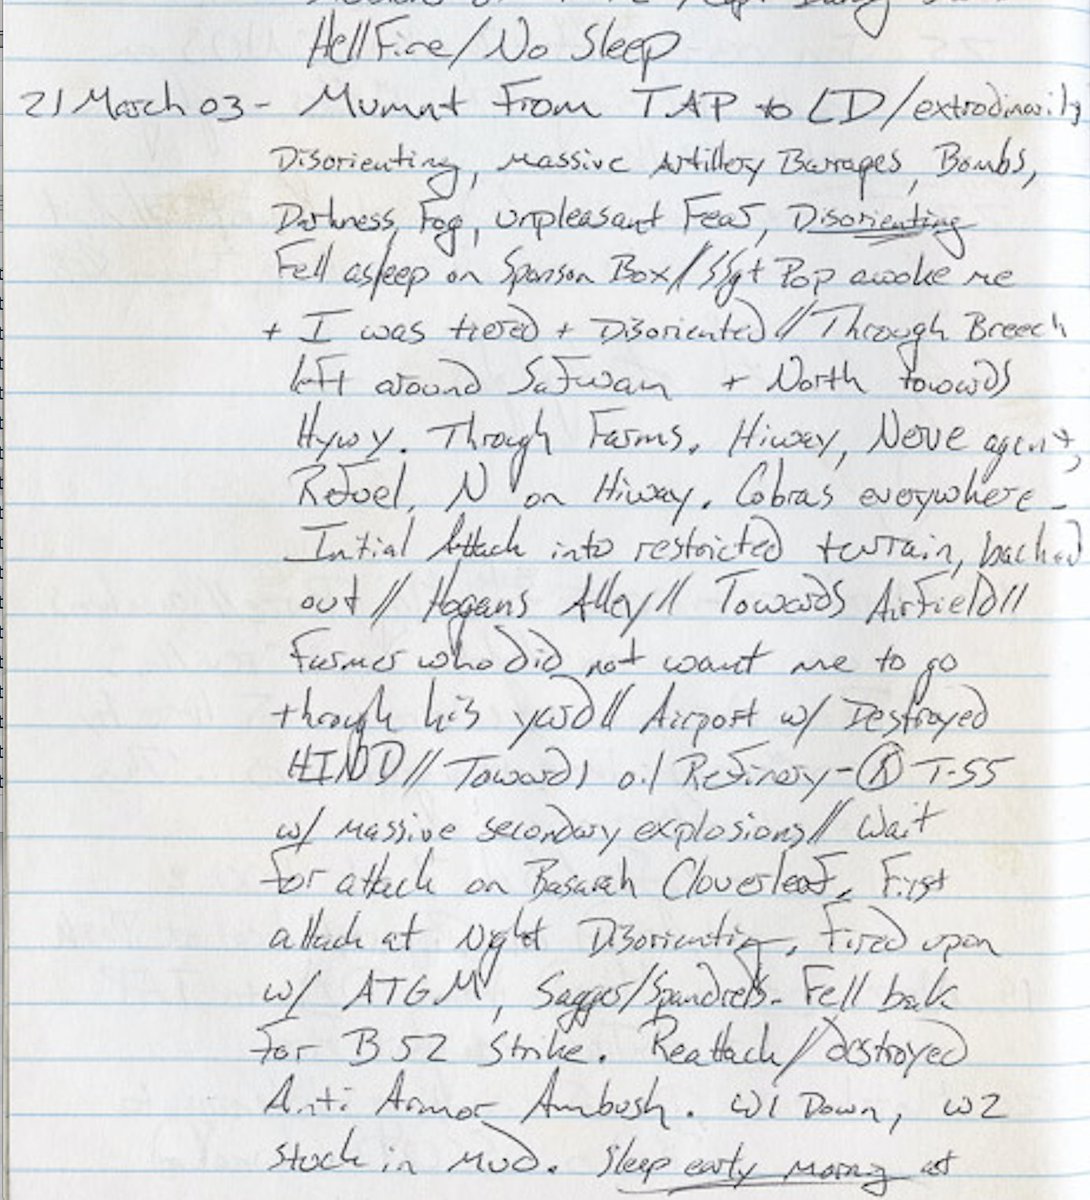 HellFire/No Sleep
21 March 03- Mvmnt From TAP to LD/extrodinarily
Disorienting, massive Artillery Barrages, Bombs,
Darkness, Fog, unpleasant Fear, Disorienting
Fell asleep on Sponson Box//SSgt Pop awoke me
+ I was tiered + Disoriented//Through Breech
left around Safwan + North towards
Hywy. Through Farms. Hiway, Nerve agent,
Refuel, N on Hiway. Cobras everywhere-
Initial Attack into restricted terrain, backed
out//Hogans Alley//Towards AirField//
Farmer who Did not want me to go
through his yard//Airport w/ Destroyed
HIND//Towards oil Refinery-Ⓚ T-55
w/ massive secondary explosions//Wait
for attack on Basarah Cloverleaf. First
attack at Night Disorienting, Fired upon
w/ ATGM, Sagger/Spandrels. Fell back
For B52 Strike. Reattack/destroyed
Anti Armor Ambush. W1 Down, W2
stuck in MUD. Sleep early morng at